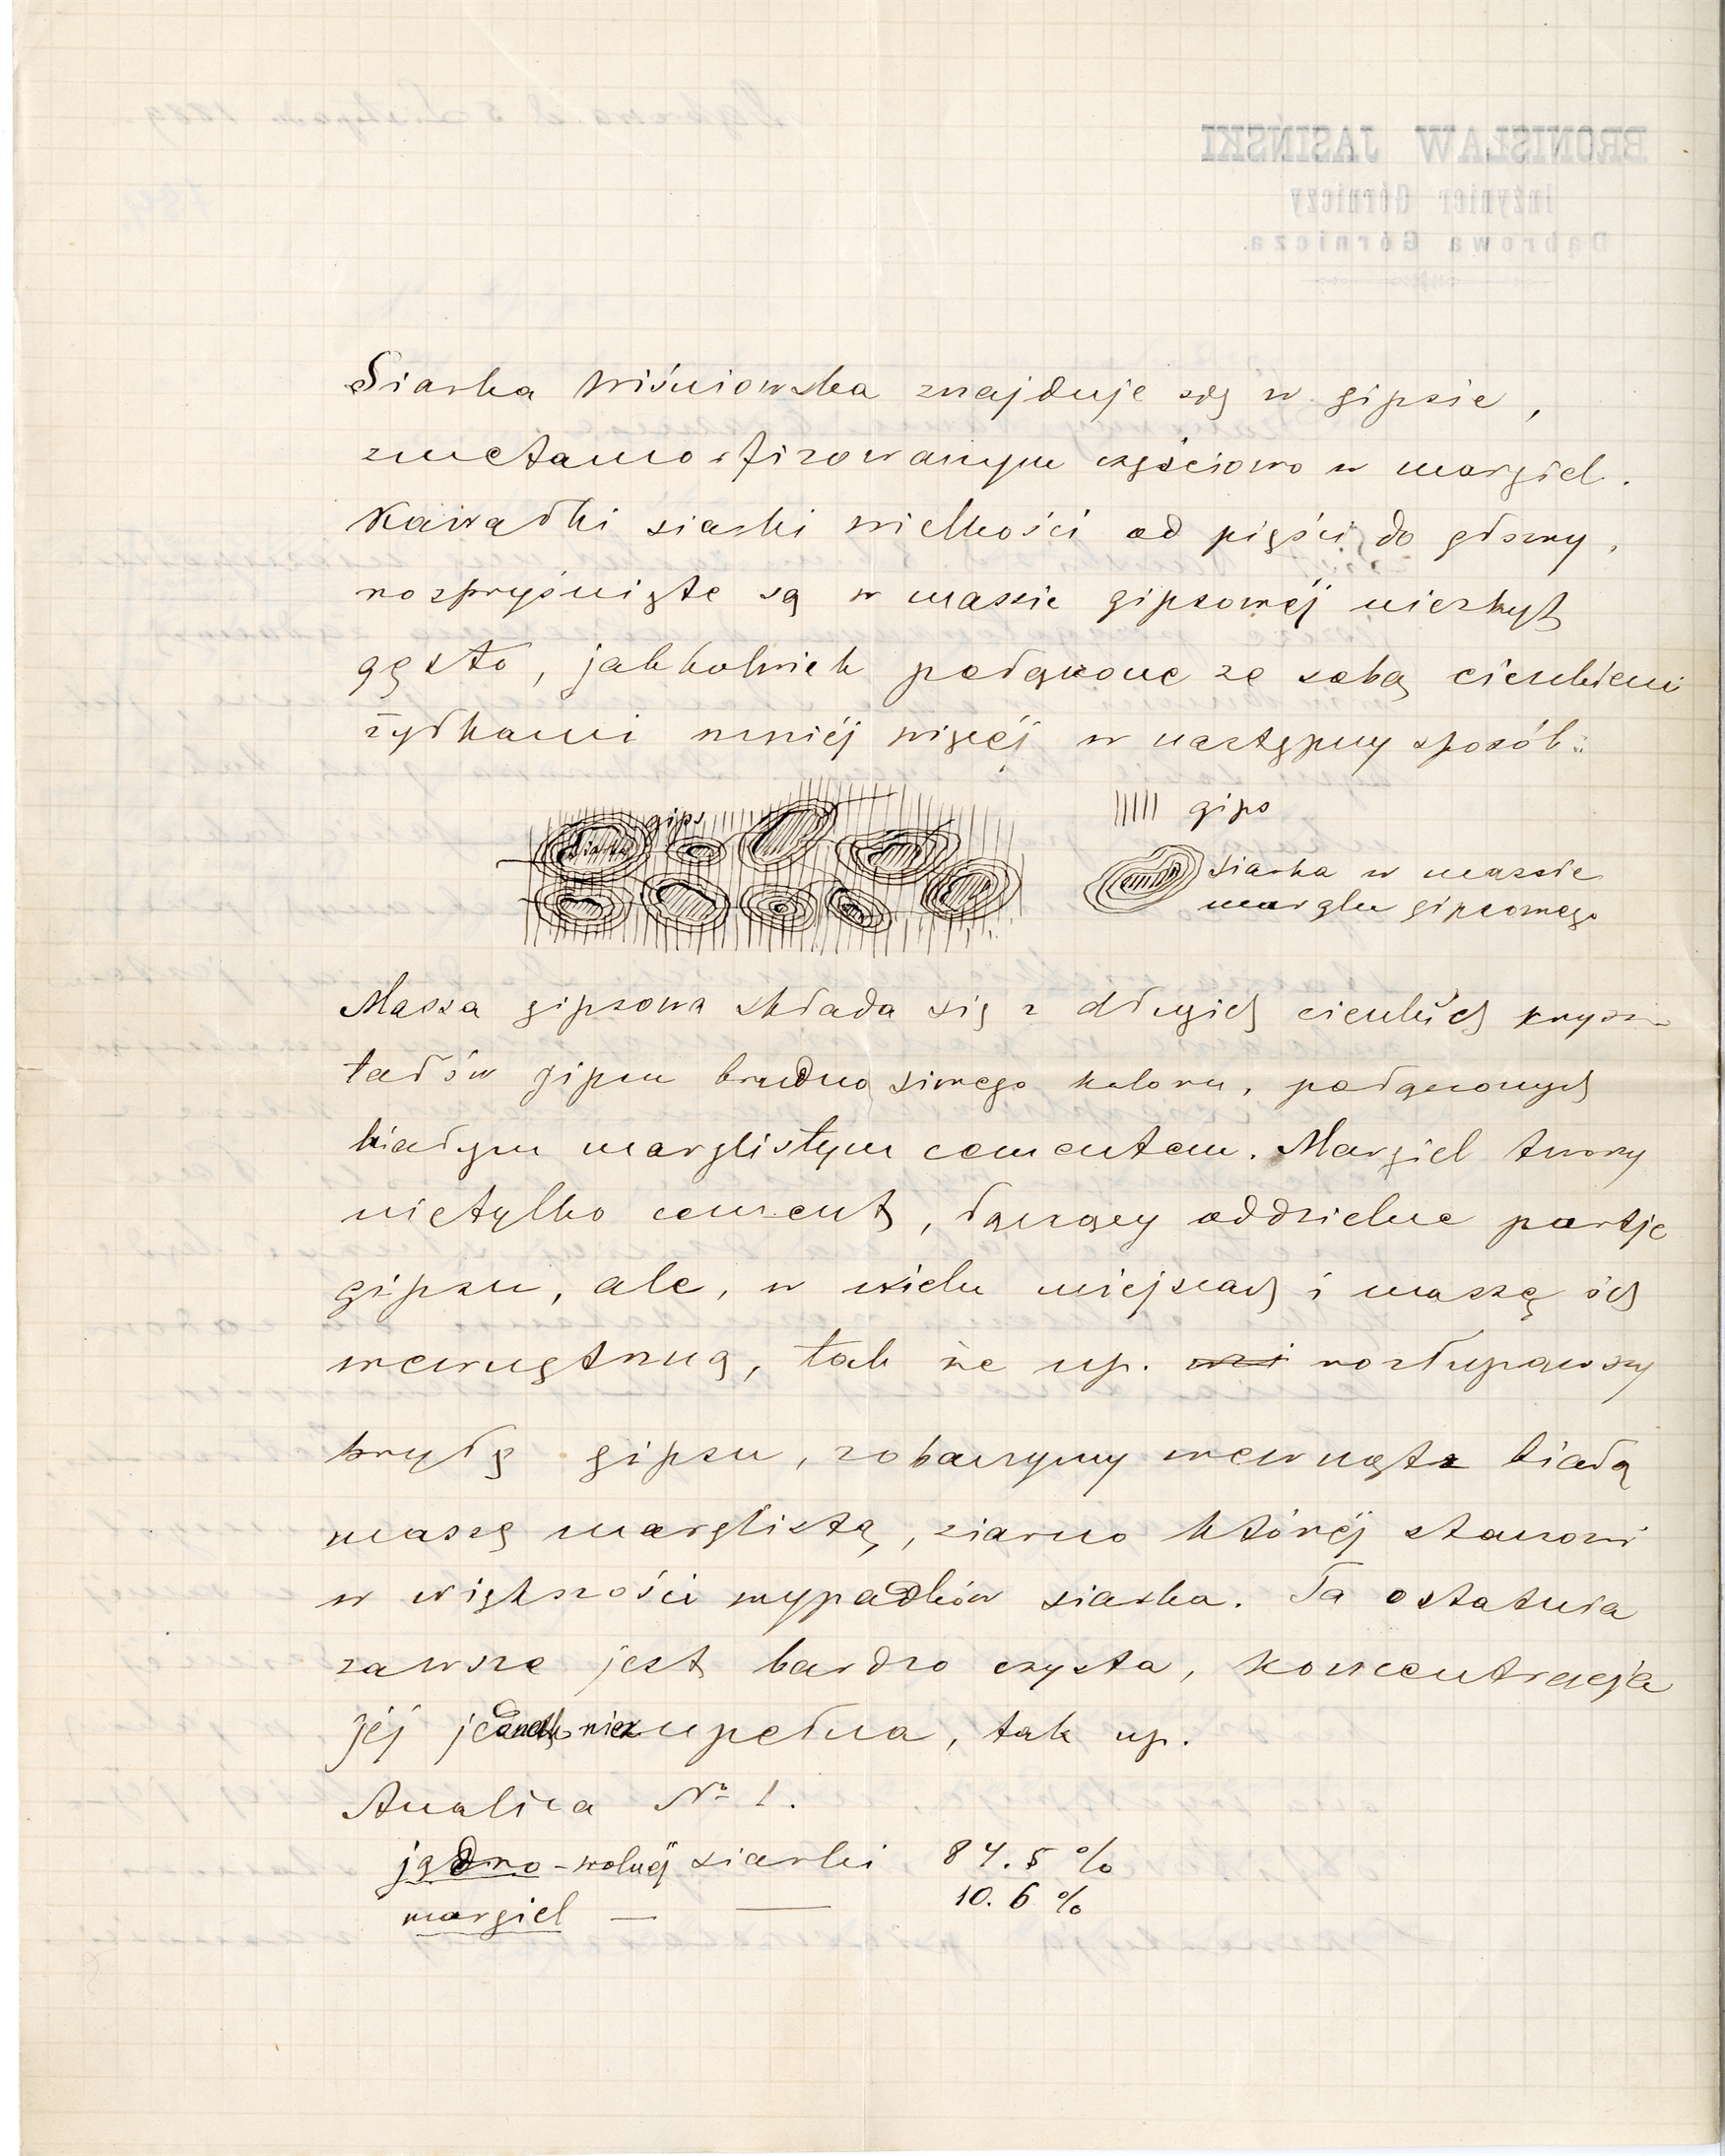 BRONISŁAW JASIŃSKI
Inżynier Górniczy
Dąbrowa Górnicza.
Siarka Wiśniowska znajduje się w gipsie,
zmetamorfizowanym częściowo w margiel.
Kawałki siarki wielkości od pięści do głowy,
rozpryśnięte są w massie gipsowéj niezbyt
gęsto, jakkolwiek połączone ze sobą cienkiemi
żyłkami mniéj więcéj w następny sposób:
gips
siarka
gips
siarka w massie
marglu gipsowego
Massa gipsowa składa się z długich cienkich krysz-
tałów gipsu brudno siwego koloru, połączonych
białym marglistym cementem. Margiel tworzy
nietylko cement, łączący oddzielne partje
gipsu, ale, w wielu miejscach i masssę ich
wewnętrzną, tak że np. rozłupawszy
bryłę gipsu, zobaczymy wewnątrz białą
masę marglistą, ziarno któréj stanowi
w większości wypadków siarka. Ta ostatnia
zawsze jest bardzo czysta, koncentracja
jéj jednak niezupełna, tak np.
Analiza № 1.
jądro - wolnéj siarki 84.5 %
margiel — — 10.6 %